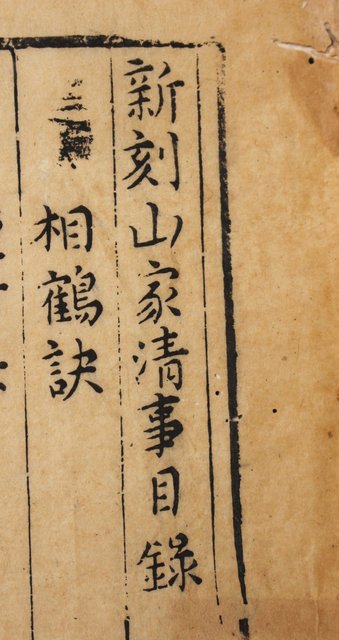 新刻山家清事目錄
相鶴訣